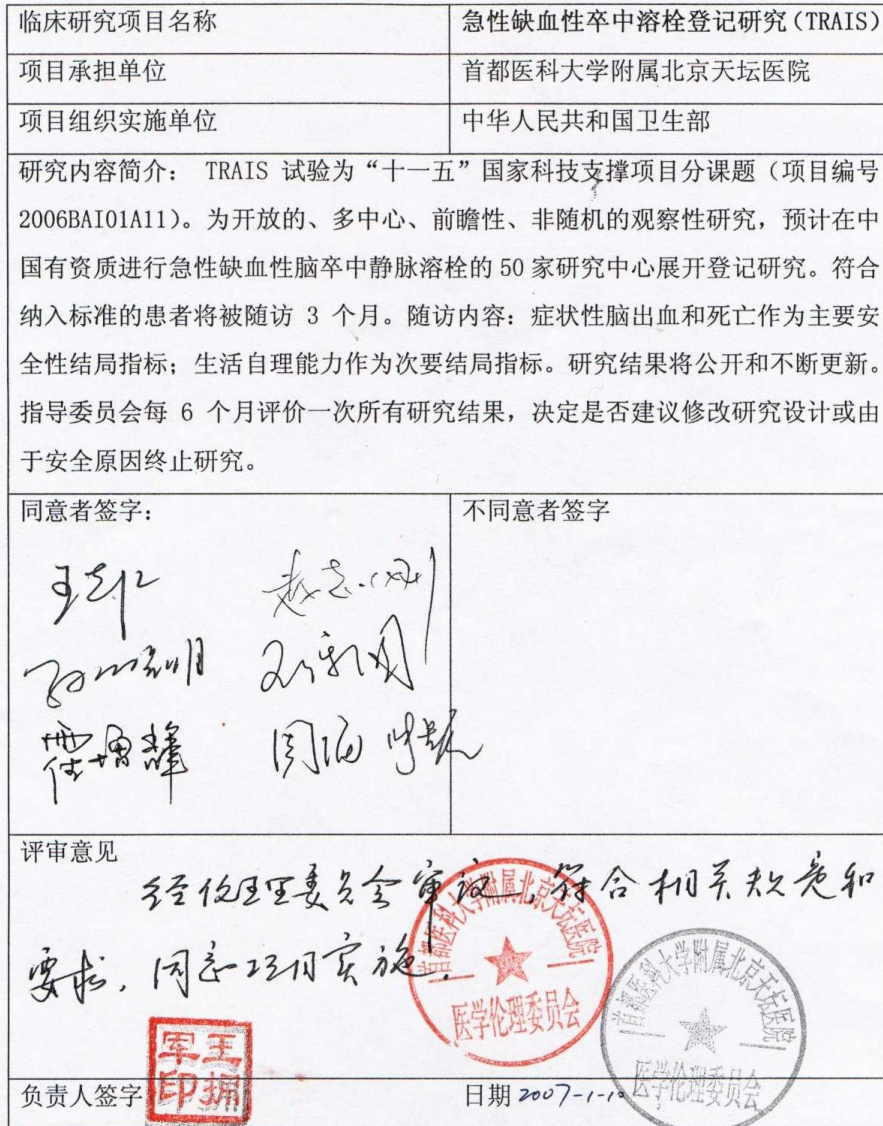 临床研究项目名称 急性缺血性卒中溶栓登记研究(TRAIS)
项目承担单位 首都医科大学附属北京天坛医院
项目组织实施单位 中华人民共和国卫生部
研究内容简介: TRAIS 试验为“十一五”国家科技支撑项目分课题(项目编号
2006BAI01A11)。为开放的、多中心、前瞻性、非随机的观察性研究,预计在中
国有资质进行急性缺血性脑卒中静脉溶栓的 50 家研究中心展开登记研究。符合
纳入标准的患者将被随访 3 个月。随访内容:症状性脑出血和死亡作为主要安
全性结局指标;生活自理能力作为次要结局指标。研究结果将公开和不断更新。
指导委员会每 6 个月评价一次所有研究结果,决定是否建议修改研究设计或由
于安全原因终止研究。
同意者签字: 不同意者签字
赵志刚
评审意见
经伦理委员会审议,符合相关规定和
要求,同意项目实施.
首都医科大学附属北京天坛医院
医学伦理委员会
首都医科大学附属北京天坛医院
医学伦理委员会
王拥
军印
负责人签字 日期 2007-1-10